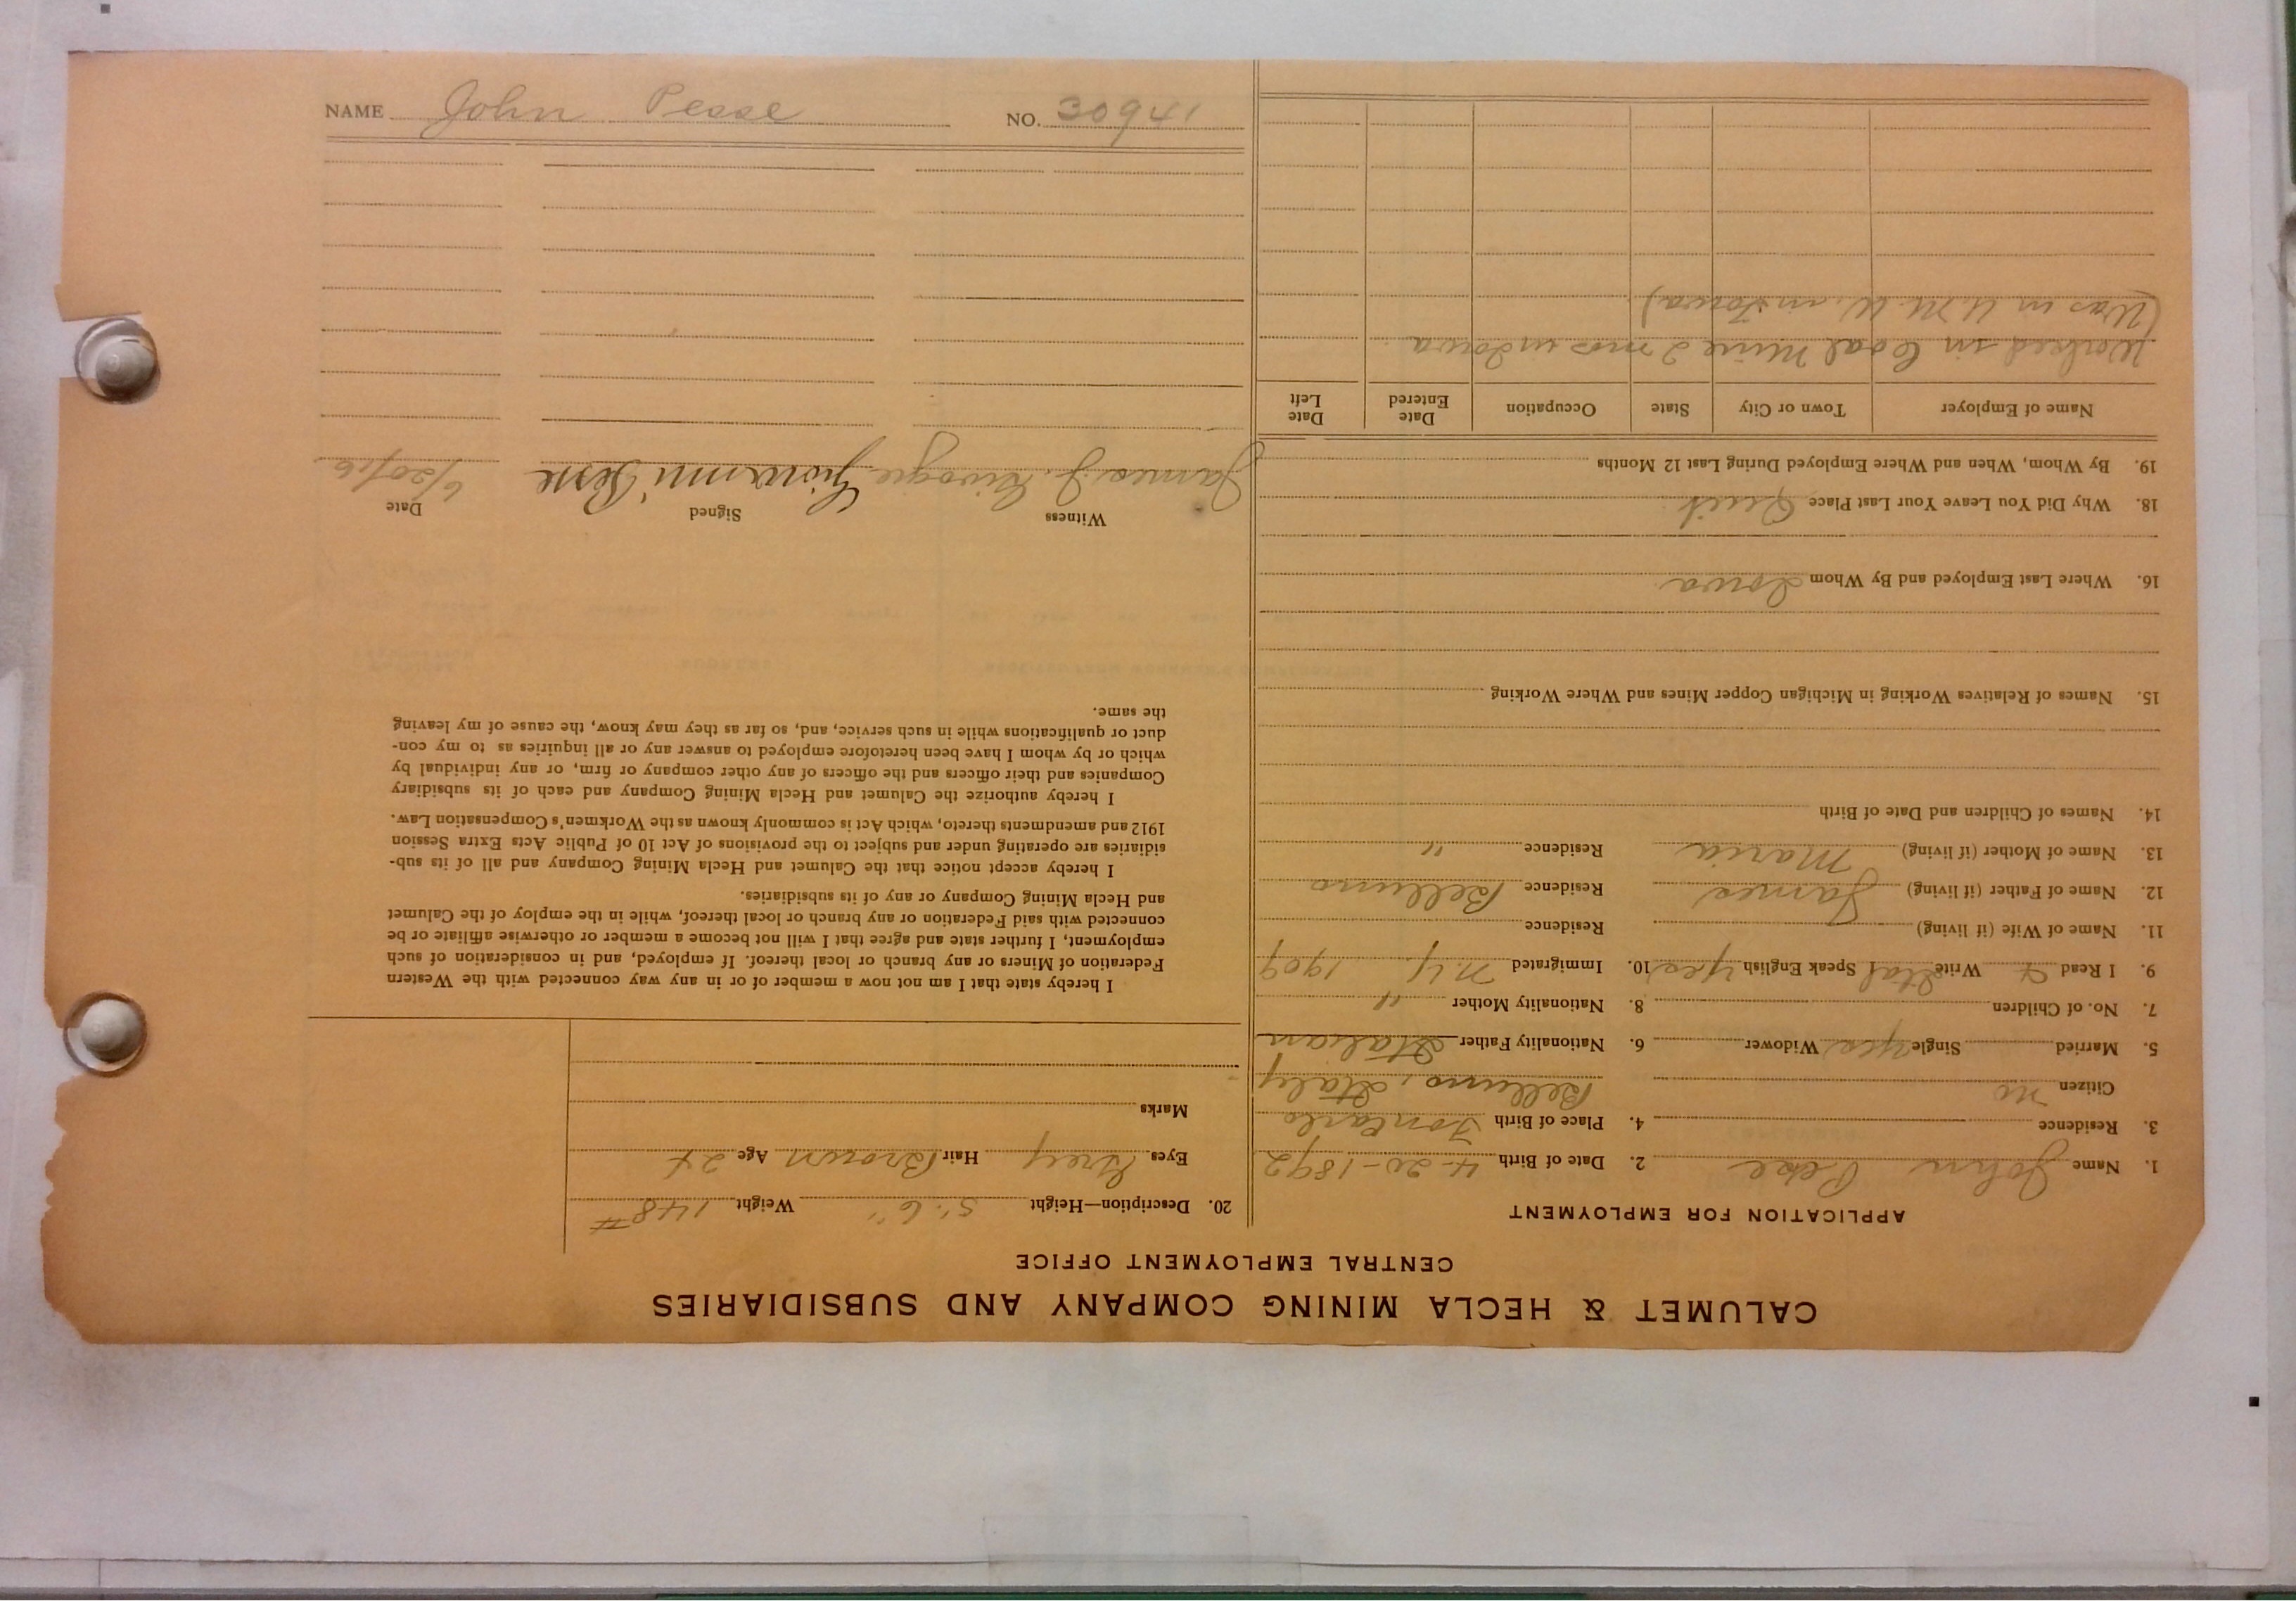 CALUMET & HECLA MINING COMPANY AND SUBSIDIARIES
CENTRAL EMPLOYMENT OFFICE
APPLICATION FOR EMPLOYMENT
1. Name John Pese 2. Date of Birth 4-20-1892
3. Residence 4. Place of Birth
Citizen no Belluno, Italy
5. Married Single Yes Widower 6. Nationality Father Italian
7. No. of Children 8. Nationality Mother "
9. I Read & Write Ital Speak English Yes 10. Immigrated N.Y. 1909
11. Name of Wife (if living) Residence
12. Name of Father (if living) James Residence Belluno
13. Name of Mother (if living) Maria Residence "
14. Names of Children and Date of Birth
15. Names of Relatives Working in Michigan Copper Mines and Where Working
16. Where Last Employed and By Whom Iowa
18. Why Did You Leave Your Last Place Quit
19. By Whom, When and Where Employed During Last 12 Months
Name of Employer Town or City State Occupation Date Entered Date Left
Worked in Coal Mine 2 mos in Iowa
(Was in U.M.W. in Iowa)
20. Description—Height 5' 6" Weight 148#
Eyes Grey Hair Brown Age 24
Marks
I hereby state that I am not now a member of or in any way connected with the Western
Federation of Miners or any branch or local thereof. If employed, and in consideration of such
employment, I further state and agree that I will not become a member or otherwise affiliate or be
connected with said Federation or any branch or local thereof, while in the employ of the Calumet
and Hecla Mining Company or any of its subsidiaries.
I hereby accept notice that the Calumet and Hecla Mining Company and all of its sub-
sidiaries are operating under and subject to the provisions of Act 10 of Public Acts Extra Session
1912 and amendments thereto, which Act is commonly known as the Workmen's Compensation Law.
I hereby authorize the Calumet and Hecla Mining Company and each of its subsidiary
Companies and their officers and the officers of any other company or firm, or any individual by
which or by whom I have been heretofore employed to answer any or all inquiries as to my con-
duct or qualifications while in such service, and, so far as they may know, the cause of my leaving
the same.
Witness Signed Date
James J. Giovanni Pese 6/20/16
NAME John Pesse NO. 30941